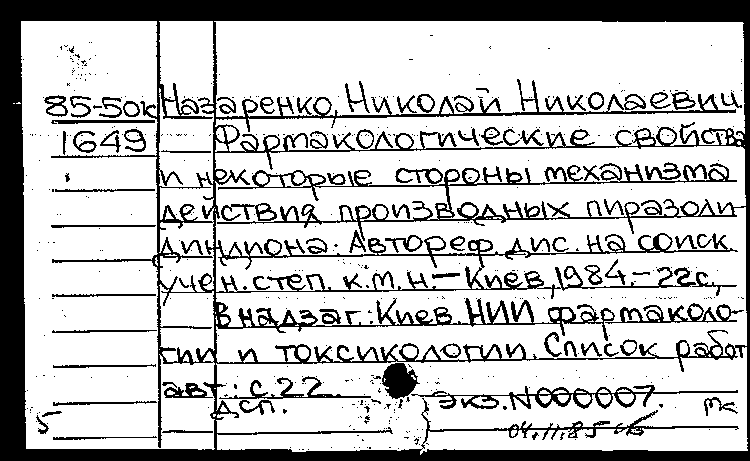 85-5ок Назаренко, Николай Николаевич.
1649 Фармакологические свойства
и некоторые стороны механизма
действия производных пиразоли-
диндиона: Автореф. дис. на соиск.
учен. степ. к.м.н.- Киев, 1984.- 22с.,
В надзаг.: Киев. НИИ фармаколо-
гии и токсикологии. Список работ
авт.: с.22.
дсп. экз. N000007.
5 04.11.85